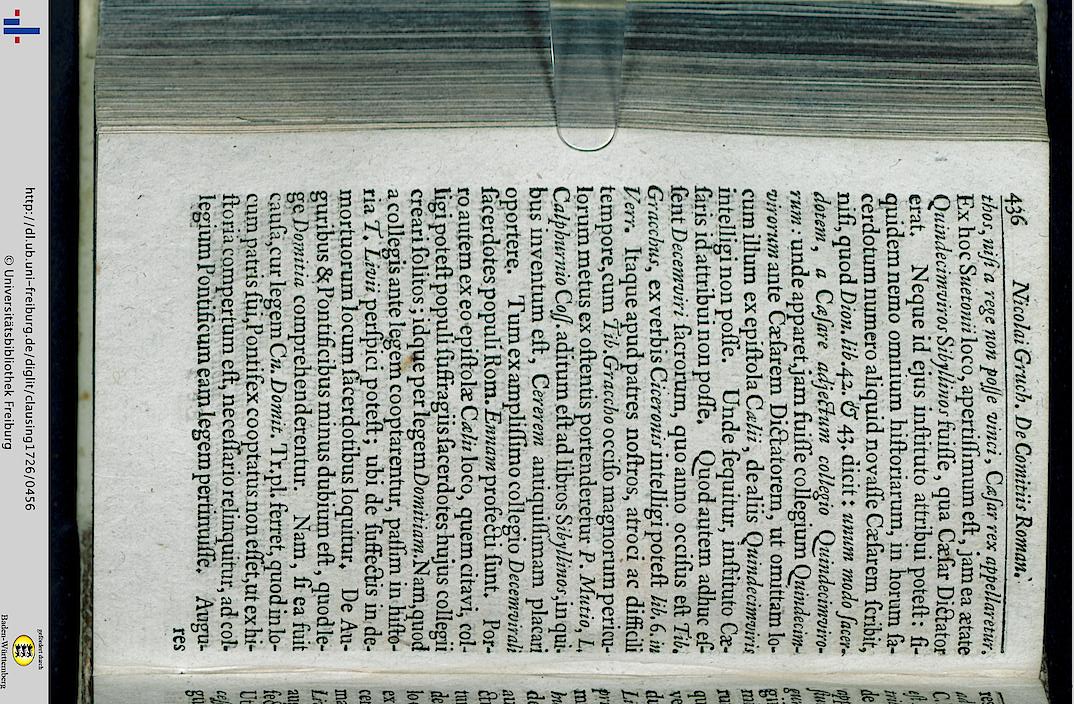 436 Nicolai Gruch. De Comitiis Roman.
thos, nisi a rege non posse vinci, Cæsar rex appellaretur.
Ex hoc Suetonii loco, apertissimum est, jam ea ætate
Quindecimviros Sibyllinos fuisse, qua Cæsar Dictator
erat. Neque id ejus instituto attribui potest: si-
quidem nemo omnium historiarum, in horum sa-
cerdotum numero aliquid novasse Cæsarem scribit,
nisi, quod Dion. lib. 42. & 43. dicit: unum modo sacer-
dotem, a Cæsare adjectum collegio Quindecimviro-
rum: unde apparet, jam fuisse collegium Quindecim-
virorum ante Cæsarem Dictatorem, ut omittam lo-
cum illum ex epistola Cælii, de aliis Quindecimviris
intelligi non posse. Unde sequitur, instituto Cæ-
saris id attribui non posse. Quod autem adhuc es-
sent Decemviri sacrorum, quo anno occisus est Tib.
Gracchus, ex verbis Ciceronis intelligi potest lib. 6. in
Verr. Itaque apud patres nostros, atroci ac difficili
tempore, cum Tib. Graccho occiso magnorum pericu-
lorum metus ex ostentis portenderetur P. Mutio, L.
Calphurnio Coss. aditum est ad libros Sibyllinos, in qui-
bus inventum est, Cererem antiquissimam placari
oportere. Tum ex amplissimo collegio Decemvirali
sacerdotes populi Rom. Ennam profecti sunt. Por-
ro autem ex eo epistolæ Cælii loco, quem citavi, col-
ligi potest populi suffragiis sacerdotes hujus collegii
creari solitos; idque per legem Domitiam. Nam, quod
a collegis ante legem cooptarentur, passim in histo-
ria T. Livii, perspici potest; ubi de suffectis in de-
mortuorum locum sacerdotibus loquitur. De Au-
guribus & Pontificibus minus dubium est, quod le-
ge Domitia comprehenderentur. Nam, si ea fuit
causa, cur legem Cn. Domit. Tr. pl. ferret, quod in lo-
cum patris sui, Pontifex cooptatus non esset, ut ex hi-
storia compertum est, necessario relinquitur, ad col-
legium Pontificum eam legem pertinuisse. Augu-
res
http://dl.ub.uni-freiburg.de/diglit/clausing1726/0456
© Universitätsbibliothek Freiburg
gefördert durch
Baden-Württemberg